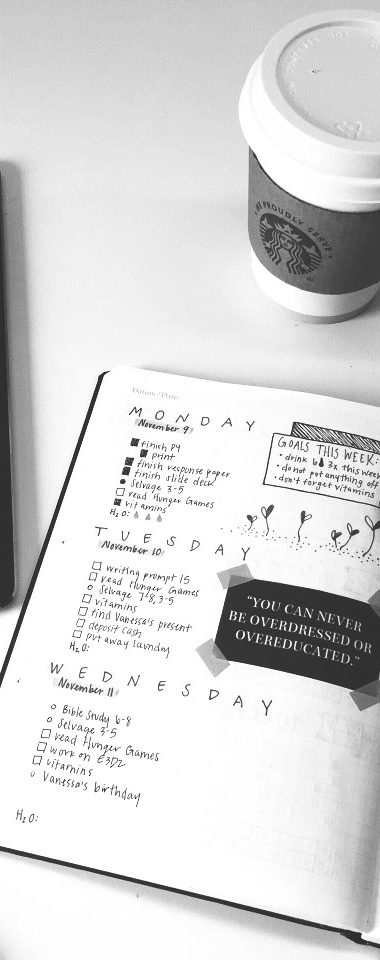 WE PROUDLY SERVE
Datum / Date:
MONDAY
November 9
finish P4
print
finish response paper
finish slide deck
Selvage 3-5
read Hunger Games
vitamins
H₂O:
GOALS THIS WEEK:
• drink 6 3x this week
• do not put anything off
• don't forget vitamins
TUESDAY
November 10
writing prompt 15
read Hunger Games
Selvage 7-8, 3-5
vitamins
find Vanessa's present
deposit cash
put away laundry
H₂O:
"YOU CAN NEVER
BE OVERDRESSED OR
OVEREDUCATED."
WEDNESDAY
November 11
Bible Study 6-8
Selvage 3-5
read Hunger Games
work on E3D2
vitamins
Vanessa's birthday
H₂O: